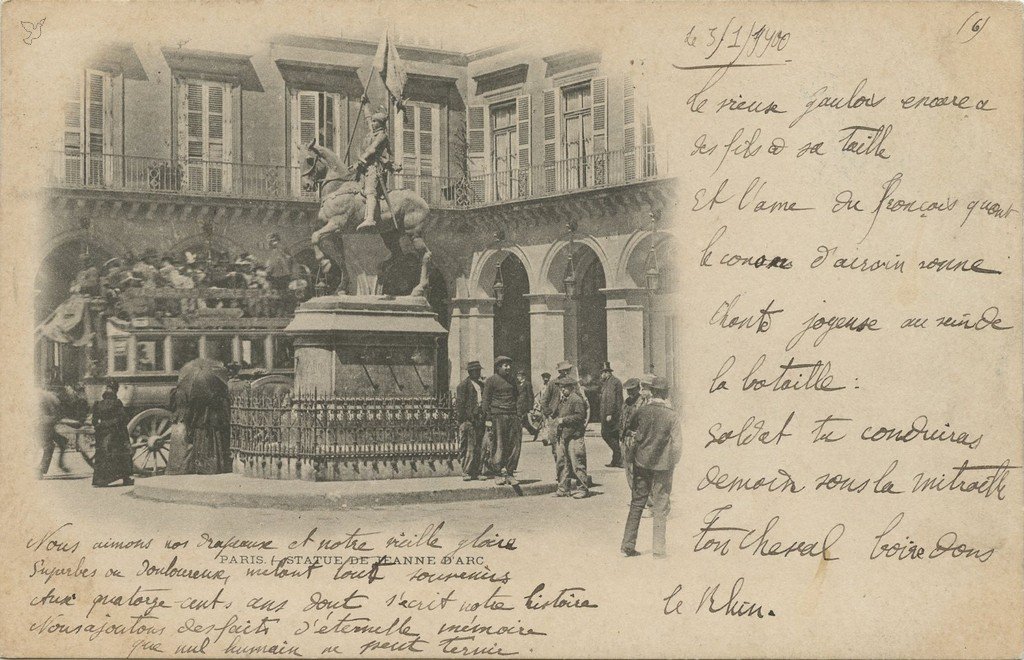 (6)
le 3/1/1900
le vieux Gaulois encore a
des fils à sa taille
Et l'ame du françois quant
le canon d'airain sonne
Chante joyeuse au sein de
la bataille :
Soldat tu conduiras
demain sous la mitraille
Ton cheval boire dans
le Rhin.
PARIS. — STATUE DE JEANNE D'ARC
Nous aimons nos drapeaux et notre vieille gloire
Superbes ou douloureux, mêlant tout souvenirs
Aux quatorze cents ans dont s'écrit notre histoire
Nous ajoutons des faits d'éternelle mémoire
que nul humain ne peut ternir.